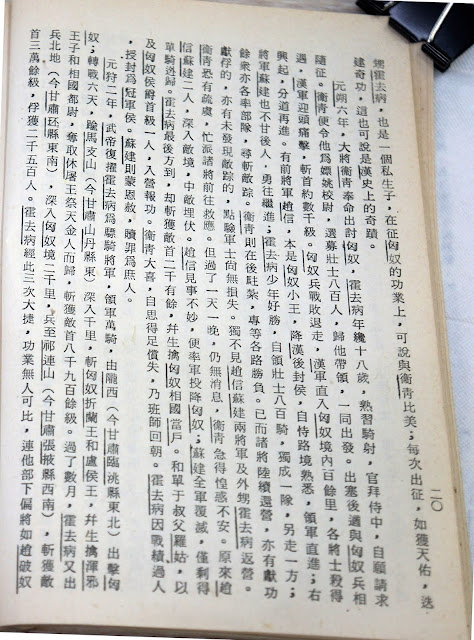 二〇
甥霍去病，也是一個私生子，在征匈奴的功業上，可說與衛青比美；每次出征，如獲天佑，迭
建奇功，這也可說是漢史上的奇蹟。
元朔六年，大將衛青奉命出討匈奴，霍去病年纔十八歲，熟習騎射，官拜侍中，自願請求
隨征。衛青便令他爲嫖姚校尉，選募壯士八百人，歸他帶領，一同出發。出塞後適與匈奴兵相
遇，漢軍迎頭痛擊，斬首約數千級。匈奴兵戰敗退走，漢軍直入匈奴境內百餘里，各將士殺得
興起，分道再進。有前將軍趙信，本是匈奴小王，降漢後封侯，自恃路境熟悉，領軍直進；右
將軍蘇建也不甘後人，勇往繼進；霍去病少年好勝，自領壯士八百騎，獨成一隊，另走一方；
餘衆亦各率部隊，尋斬敵踪。衛青則在後駐紮，專等各路勝負。已而諸將陸續還營，亦有獻功
獻俘的，亦有未發現敵踪的，點驗軍士尙無損失。獨不見趙信蘇建兩將軍及外甥霍去病返營。
衛青恐有疏虞，忙派諸將前往救應。但過了一天一晚，仍無消息，衛青急得惶惑不安。原來趙
信蘇建二人，深入敵境，中敵埋伏。趙信見事不妙，便率軍投降匈奴；蘇建全軍覆滅，僅剩得
單騎逃歸。霍去病最後方到，却斬獲敵首二千有餘，幷生擒匈奴相國當戶。和單于叔父羅姑，以
及匈奴侯爵首級一人，入營報功。衛青大喜，自思得足償失，乃班師回朝。霍去病因戰績過人
，授封爲冠軍侯。蘇建則蒙恩赦，贖罪爲庶人。
元狩二年，武帝復擢霍去病爲驃騎將軍，領軍萬騎，由隴西（今甘肅臨洮縣東北）出擊匈
奴；轉戰六天，踰馬支山（今甘肅山丹縣東）深入千里，斬匈奴折蘭王和盧侯王，幷生擒渾邪
王子和相國都尉，奪取休屠王祭天金人而歸，斬獲敵首八千九百餘級。過了數月，霍去病又出
兵北地（今甘肅环縣東南），深入匈奴境二千里，兵至祁連山（今甘肅張掖縣西南），斬獲敵
首三萬餘級，俘獲二千五百人。霍去病經此三次大捷，功業無人可比，連他部下偏將如趙破奴